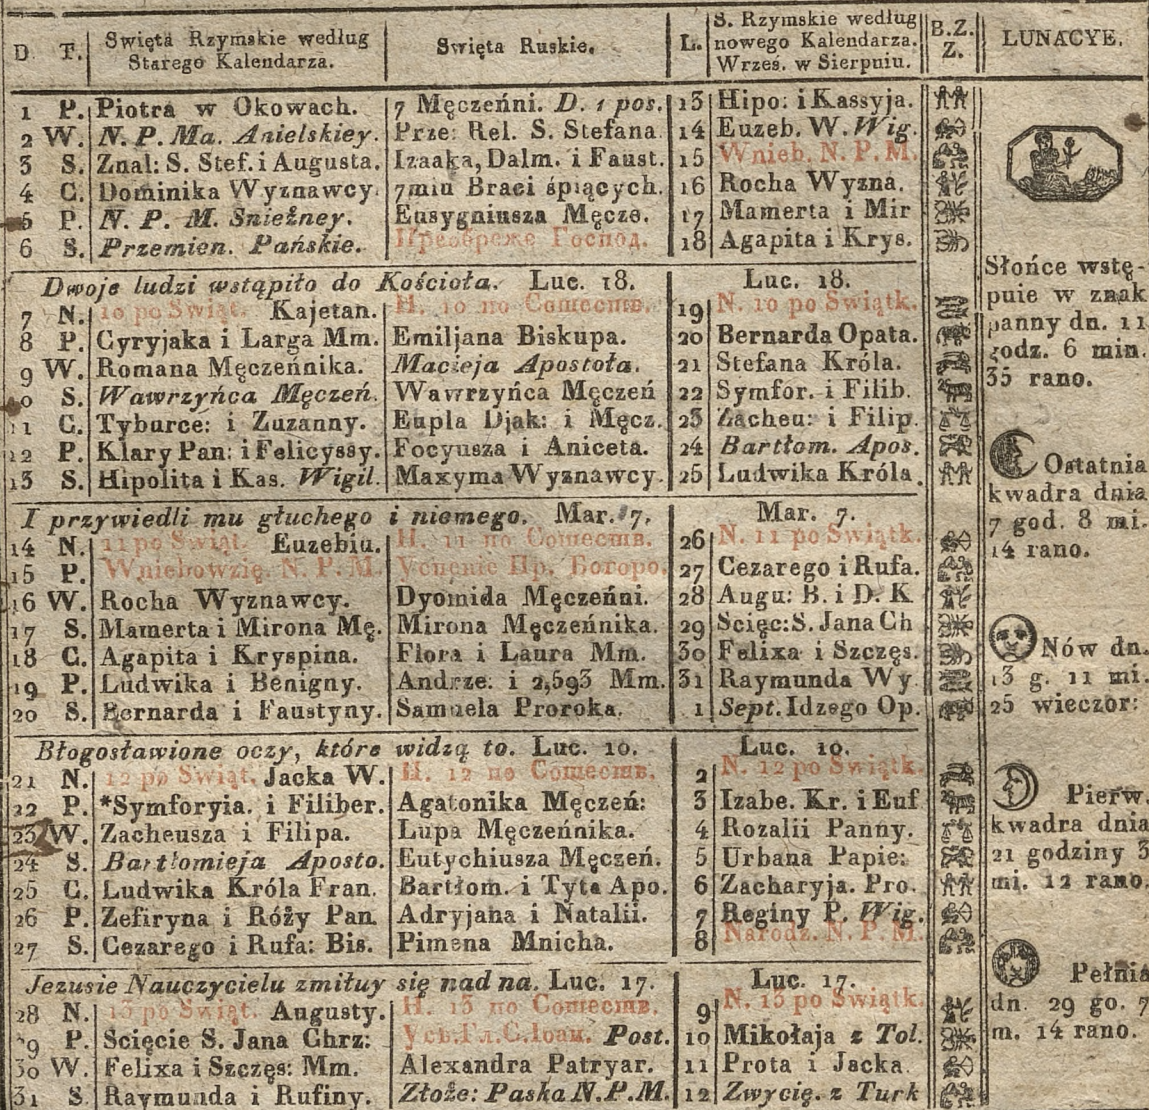 D. T. Swięta Rzymskie według Starego Kalendarza. Swięta Ruskie. L. S. Rzymskie według nowego Kalendarza. Wrzes. w Sierpniu. B.Z. Z. LUNACYE.
1 P. Piotra w Okowach. 7 Męczeńni. D. 1 pos. 13 Hipo: i Kassyja.
2 W. N. P. Ma. Anielskiey. Prze: Rel. S. Stefana 14 Euzeb. W. Wig.
3 S. Znal: S. Stef. i Augusta. Izaaka, Dalm. i Faust. 15 Wnieb. N. P. M.
4 C. Dominika Wyznawcy. 7miu Braci śpiących. 16 Rocha Wyzna.
5 P. N. P. M. Snieżney. Eusygniusza Męcze. 17 Mamerta i Mir
6 S. Przemien. Pańskie. Преображе Господ. 18 Agapita i Krys.
Dwoje ludzi wstąpiło do Kościoła. Luc. 18. Luc. 18.
7 N. 10 po Swiąt. Kajetan. Н. 10 по Сошеств. 19 N. 10 po Swiątk.
8 P. Cyryjaka i Larga Mm. Emiljana Biskupa. 20 Bernarda Opata.
9 W. Romana Męczeńnika. Macieja Apostoła. 21 Stefana Króla.
0 S. Wawrzyńca Męczeń. Wawrzyńca Męczeń 22 Symfor. i Filib.
11 C. Tyburce: i Zuzanny. Eupla Djak: i Męcz. 23 Zacheu: i Filip.
12 P. Klary Pan: i Felicyssy. Focyusza i Aniceta. 24 Bartłom. Apos.
13 S. Hipolita i Kas. Wigil. Maxyma Wyznawcy. 25 Ludwika Króla.
I przywiedli mu głuchego i niemego. Mar. 7. Mar. 7.
14 N. 11 po Swiąt. Euzebiu. Н. 11 по Сошеств. 26 N. 11 po Swiątk.
15 P. Wniebowzię. N. P. M. Успение Пр. Богоро. 27 Cezarego i Rufa.
16 W. Rocha Wyznawcy. Dyomida Męczeńni. 28 Augu: B. i D. K
17 S. Mamerta i Mirona Mę. Mirona Męczeńnika. 29 Scięc: S. Jana Ch
18 C. Agapita i Kryspina. Flora i Laura Mm. 30 Felixa i Szczęs.
19 P. Ludwika i Benigny. Andrze: i 2,593 Mm. 31 Raymunda Wy
20 S. Bernarda i Faustyny. Samuela Proroka. 1 Sept. Idzego Op.
Błogosławione oczy, które widzą to. Luc. 10. Luc. 10.
21 N. 12 po Swiąt. Jacka W. Н. 12 по Сошеств. 2 N. 12 po Swiątk.
22 P. *Symforyia. i Filiber. Agatonika Męczeń: 3 Izabe. Kr. i Euf
23 W. Zacheusza i Filipa. Lupa Męczeńnika. 4 Rozalii Panny.
24 S. Bartłomieja Aposto. Eutychiusza Męczeń. 5 Urbana Papie:
25 C. Ludwika Króla Fran. Bartłom. i Tyta Apo. 6 Zacharyja. Pro.
26 P. Zefiryna i Róży Pan Adryjana i Natalii. 7 Reginy P. Wig.
27 S. Cezarego i Rufa: Bis. Pimena Mnicha. 8 Narodz. N. P. M.
Jezusie Nauczycielu zmiłuy się nad na. Luc. 17. Luc. 17.
28 N. 13 po Swiąt. Augusty. Н. 13 по Сошеств. 9 N. 13 po Swiątk.
29 P. Scięcie S. Jana Chrz: Усѣ. Гл. С. Іоан. Post. 10 Mikołaja z Tol.
30 W. Felixa i Szczęs: Mm. Alexandra Patryar. 11 Prota i Jacka.
31 S. Raymunda i Rufiny. Złoże: Paska N. P. M. 12 Zwycię. z Turk
Słońce wstę-
puie w znak
panny dn. 11
godz. 6 min.
35 rano.
Ostatnia
kwadra dnia
7 god. 8 mi.
14 rano.
Nów dn.
13 g. 11 mi.
25 wieczor:
Pierw.
kwadra dnia
21 godziny 3
mi. 12 rano.
Pełnia
dn. 29 go. 7
m. 14 rano.